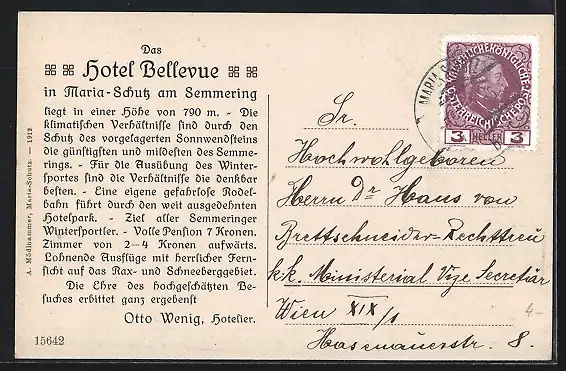 Das
Hotel Bellevue
in Maria-Schutz am Semmering
liegt in einer Höhe von 790 m. - Die
klimatischen Verhältnisse sind durch den
Schutz des vorgelagerten Sonnwendsteins
die günstigsten und mildesten des Semme-
rings. - Für die Ausübung des Winter-
sportes sind die Verhältnisse die denkbar
besten. - Eine eigene gefahrlose Rodel-
bahn führt durch den weit ausgedehnten
Hotelpark. - Ziel aller Semmeringer
Wintersportler. - Volle Pension 7 Kronen.
Zimmer von 2-4 Kronen aufwärts.
Lohnende Ausflüge mit herrlicher Fern-
sicht auf das Rax- und Schneeberggebiet.
Die Ehre des hochgeschätzten Be-
suches erbittet ganz ergebenst
Otto Wenig, Hotelier.
15642
A. Mödlhammer, Maria-Schutz. - 1912
MARIA
KAISERLICHE KÖNIGLICHE
ÖSTERREICHISCHE POST
3 HELLER 3
Sr.
Hochwohlgeboren
Herrn Dr Hans von
Brettschneider-Rechttreu
k.k. Ministerial Vize Secretär
Wien XIX/1
Hasenauerstr. 8.
4-